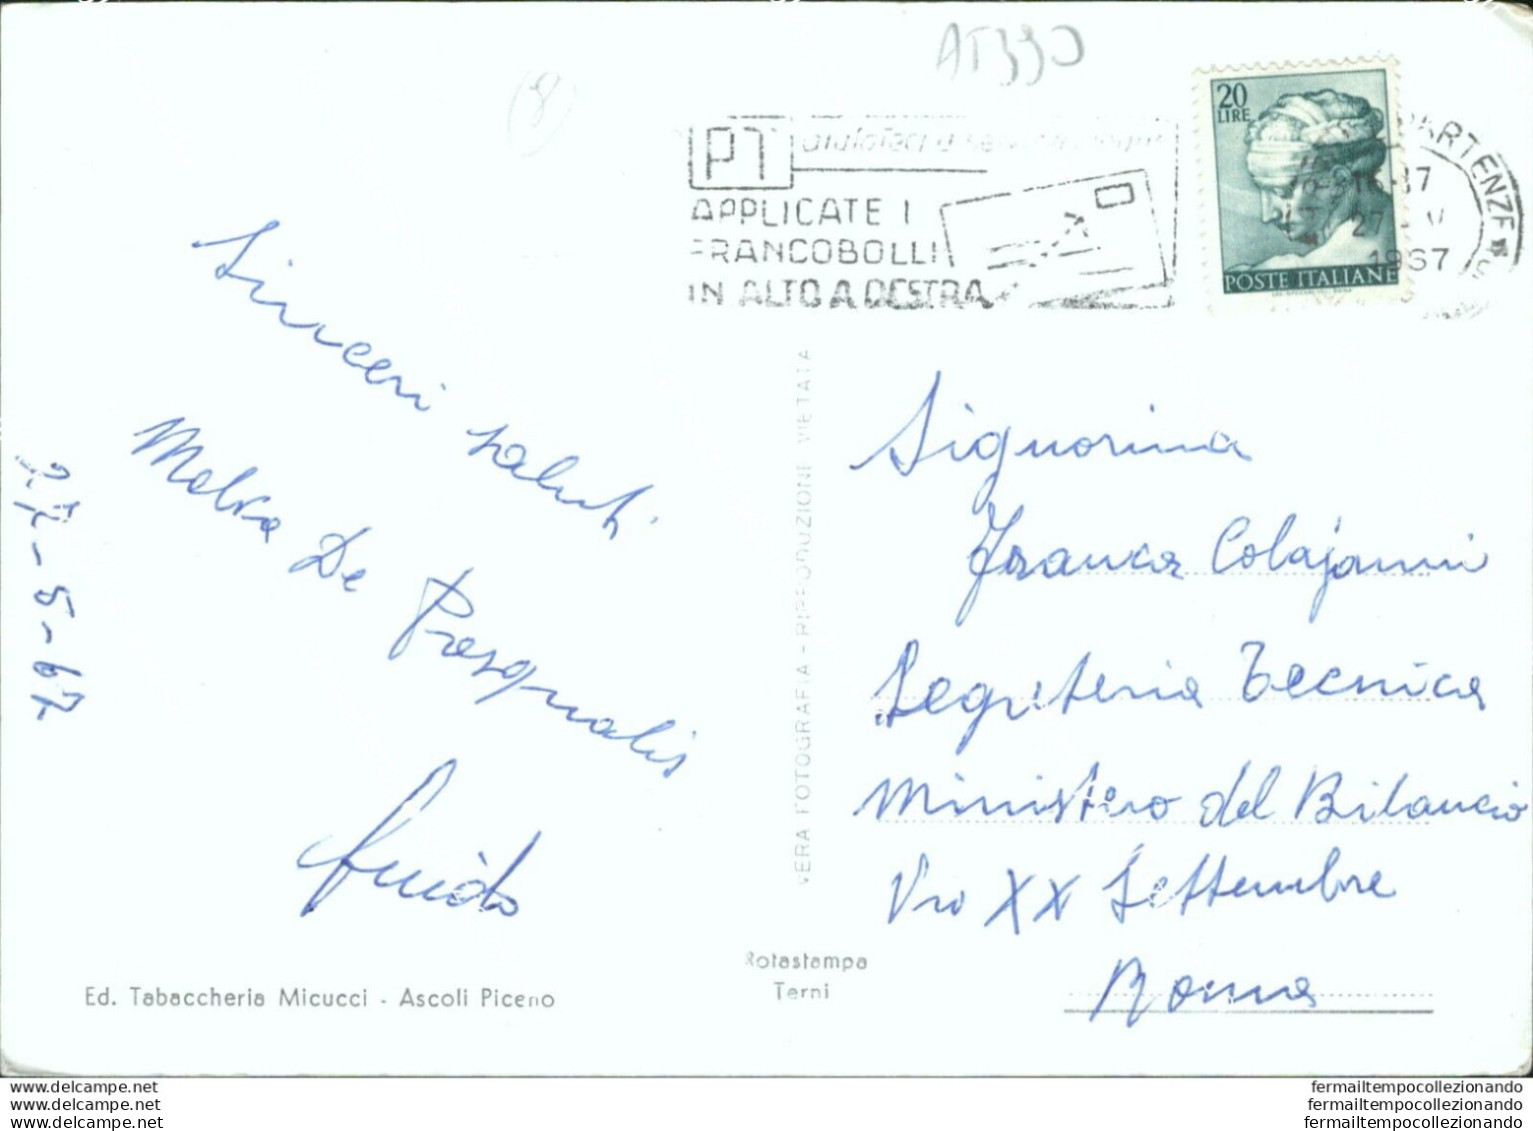 AT330
8
20
LIRE
POSTE ITALIANE
PARTENZE
27
1967
PT
APPLICATE I
FRANCOBOLLI
IN ALTO A DESTRA
Sinceri saluti
De Pasqualis
Guido
27-5-67
Signorina
Franca Colajanni
Segreteria Tecnica
Ministero del Bilancio
Via XX Settembre
Roma
VERA FOTOGRAFIA - RIPRODUZIONE VIETATA
Rotastampa
Terni
Ed. Tabaccheria Micucci - Ascoli Piceno
www.delcampe.net
www.delcampe.net
www.delcampe.net
fermailtempocollezionando
fermailtempocollezionando
fermailtempocollezionando